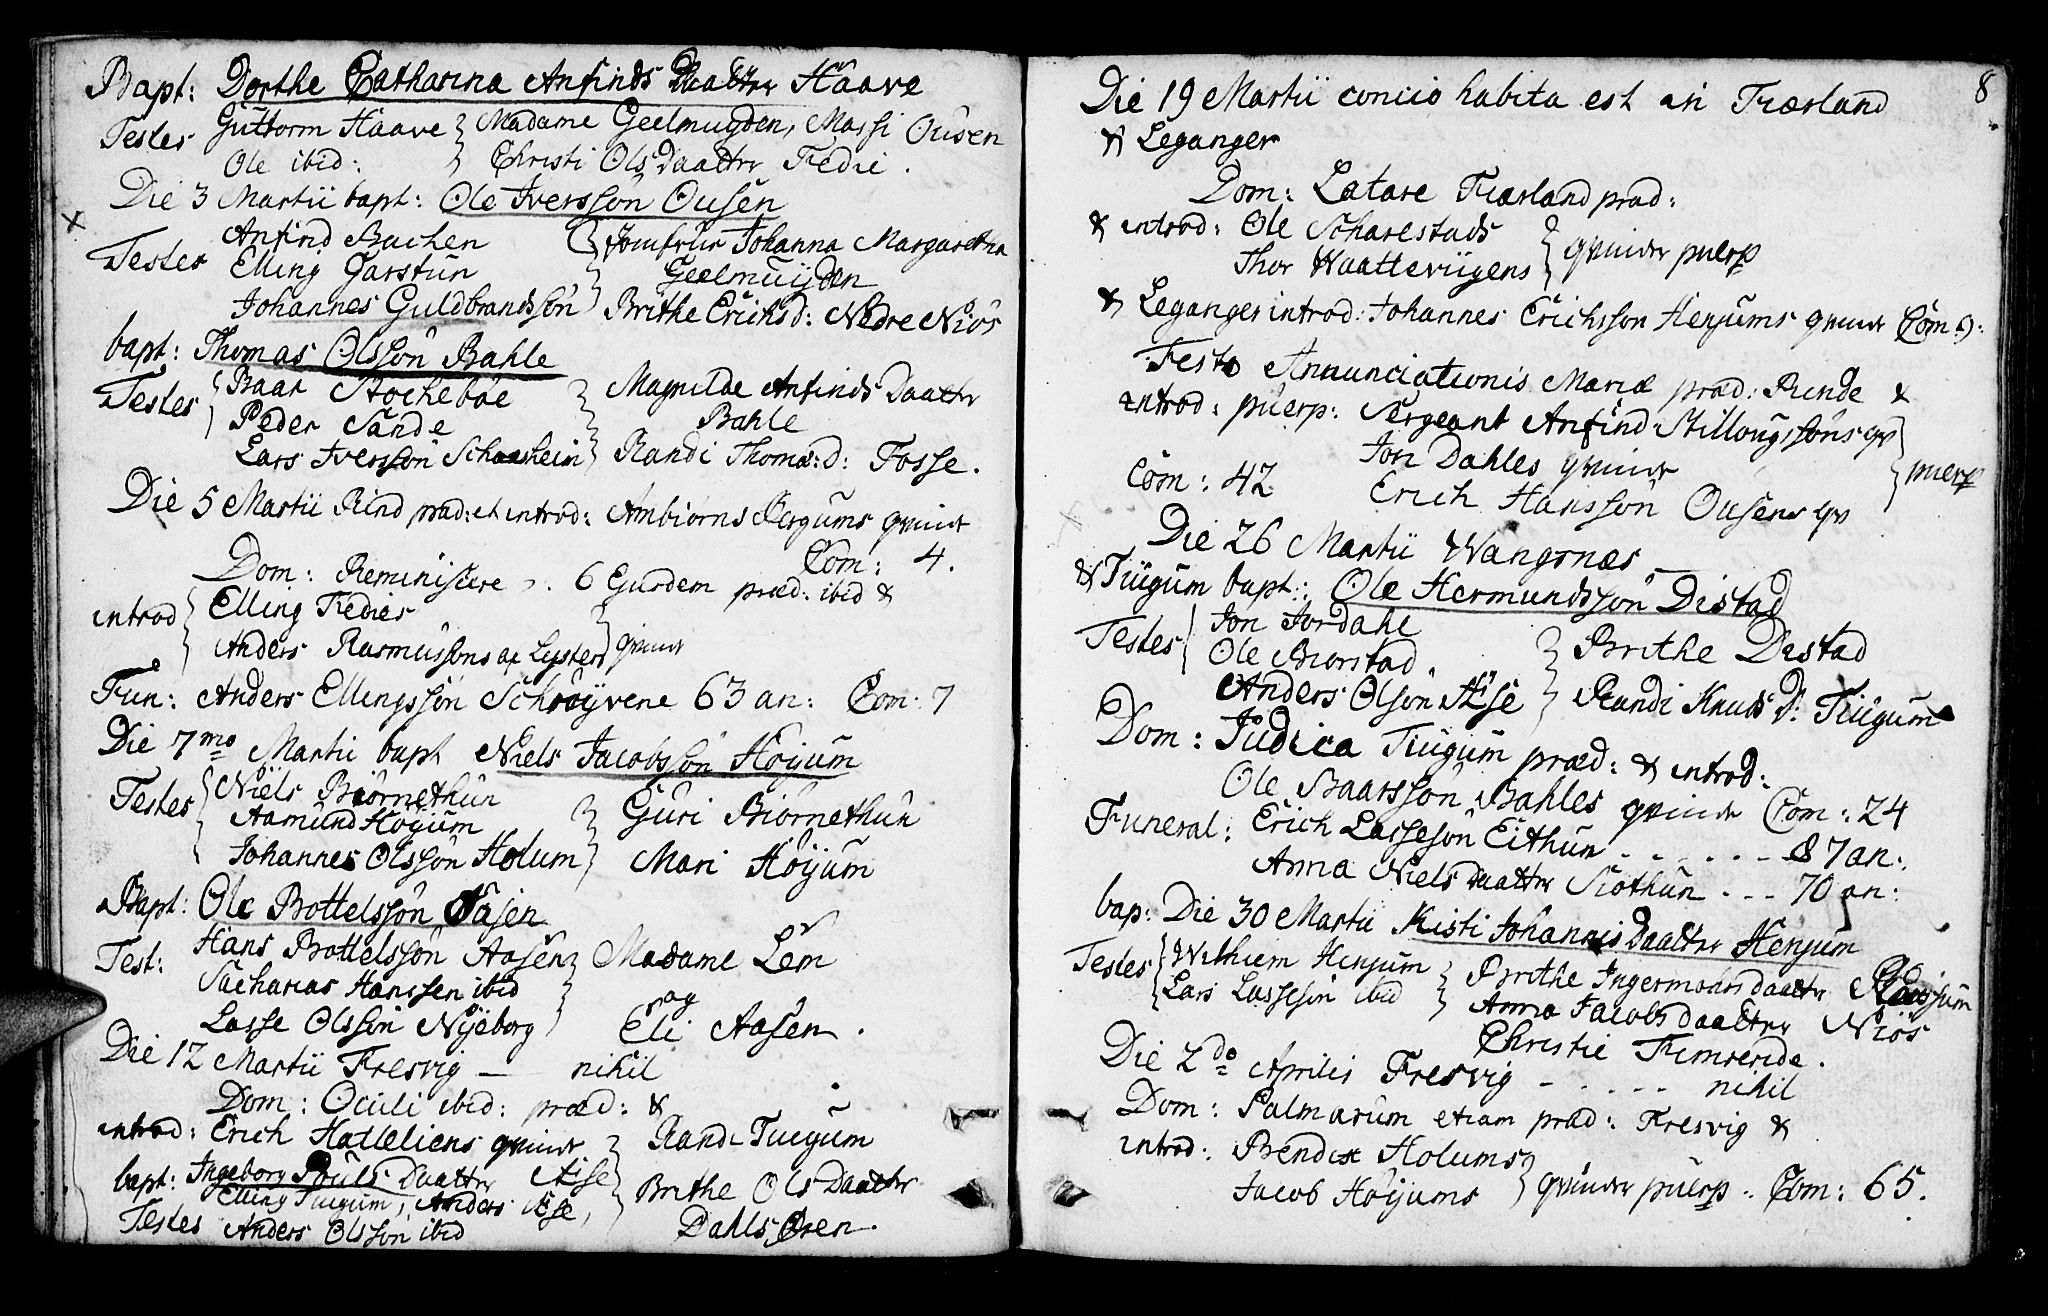 Bapt: Dorthe Catharina Anfinds Daatter Haave
Testes Guttorm Haave } Madame Geelmuyden, Massi Ousen
Ole ibid: } Christi Ols Daatter Fedie.
Die 3 Martii bapt: Ole Iversson Ousen
Testes Anfind Bachen } Jomfrue Johanna Margaretha
Elling Garstun } Geelmuijden
Johannes Guldbrandsson } Brithe Erichsd: Nedre Niös
bapt: Thomas Olsson Bahle
Testes { Baar Stochebøe } Magnilde Anfinds Daatter
Peder Sande } Bahle
Lars Iversson } Randi Thomæ:d: Fosse.
Die 5 Martii Rind præd: et introd: Ambiørns Bergums qvinde
Com: 4.
Dom: Reminiscere 6 Eurdem præd: ibid &
introd { Elling Fedies
Anders Rasmussøns af Lyster } qvind
Fun: Anders Ellingsson 63 an: Com: 7
Die 7mo Martii bapt Niels Jacobsson Höyum
Testes { Niels Biörnethun } Guri Biörnethun
Aamund Höyum
Johannes Olsson Holum } Mari Höyum
Bapt: Ole Bottelsson Aasen
Test: Hans Bottelsson Aasen } Madame Lem
Sacharias Hanssen ibid } og
Lasse Olsson Nyeborg } Eli Aasen.
Die 12 Martii Fresvig — nihil
Dom: Oculi ibid: præd: &
introd: Erich Hatleliens qvinde } Randi Tuegum
bapt: Ingeborg Pouls Daatter Aise } Brithe Ols Daatter
Testes Elling Tuegum, Anders Aise,
Anders Olsson ibid Dahls Øren.
8
Die 19 Martii concio habita est in Fiærland
& Leganger
Dom: Lætare Fiærland præd:
& introd: Ole Scharestads } qvinder puerp
Thor Waatteviigens
& Leganger introd: Johannes Erichsson Henjums qvinde Com 9:
Festo Annunciationis Mariæ præd: Rinde &
introd: puerp: Sergeant Anfind Stillougssöns qv }
Jon Dahles qvinde } puerp
Com: 42 Erich Hansson Ousens qv
Die 26 Martii Wangsnæs
& Tiugum bapt: Ole Hermundsson Distad
Testes { Jon Jordahl } Brithe Distad
Ole Biorstad.
Anders Olson Aise } Randi Knuds D: Tiugum
Dom: Judica Tiugum præd: & introd:
Ole Baarsson Bahles qvinde Com: 24
Funeral: Erich Lasseson Eithun - - - - - - 87 an:
Anna Niels Daatter Slothun - - - 70 an:
bap: Die 30 Martii Kisti Johannis Daatter Henjum
Testes { Wilhiem Henjum } Brithe Ingermoders Daatter
Lars Lasseson ibid } Anna Jacobs Daatter Niös
Christie Fimreride.
Die 2do Aprilis Fresvig - - - - - nihil
Dom: Palmarum etiam præd: Fresvig &
introd: Bendix Holums } qvinder puerp: Com: 65.
Jacob Höyums